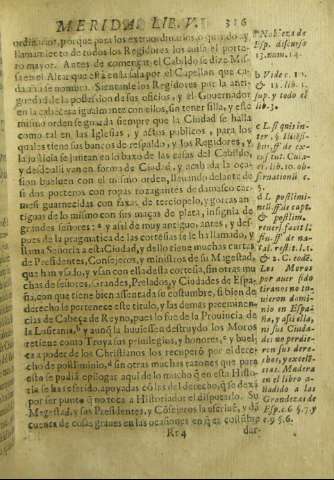 MERIDA. LIB. V.
316
ordinarios, porque para los extraordinarios o quando ay
llamamiento de todos los Regidores los auisa el porte-
ro mayor. Antes de començar el Cabildo se dize Mis-
sa en el Altar que està en la sala por el Capellan que ca-
da año se nombra. Sientanse los Regidores por la anti-
guedad de la possession de sus oficios, y el Gouernador
en la cabecera igualmente con ellos, sin tener silla, y este
mismo orden se guarda siempre que la Ciudad se halla
como tal en las Iglesias, y actos publicos, para los
quales tiene sus bancos de respaldo, y los Regidores, y
la justicia se juntan en lo baxo de las casas del Cabildo,
y desde alli van en forma de Ciudad, y acabada la oca-
sion bueluen con el mismo orden, lleuando delante de
si dos porteros con ropas rozagantes de damasco car-
mesi guarnecidas con faxas de terciopelo, y gorras an-
tiguas de lo mismo con sus maças de plata, insignia de
grandes señores: a y assi de muy antiguo, antes, y des-
pues de la pragmatica de las cortesias se le ha llamado, y
llama Señoria a esta Ciudad, y dello tiene muchas cartas
de Presidentes, Consejeros, y ministros de su Magestad,
que han vsado, y vsan con ella desta cortesia, sin otras mu
chas de señores, Grandes, Prelados, y Ciudades de Espa-
ña, con que tiene bien assentada su costumbre, si bien de
derecho le pertenece este titulo, y las demas preeminen-
cias de Cabeça de Reyno, pues lo fue de la Prouincia de
la Lusitania, b y aunq̃ la huuiessen destruydo los Moros
retiene como Troya sus priuilegios, y honores, c y buel-
ta a poder de los Christianos los recuperò por el dere-
cho de postliminio, d sin otras muchas razones que para
ello se podià epilogar aqui de lo mucho q̃ en esta Histo-
ria se ha referido, apoyadas cõ las del derecho, q̃ se dexã
por ser punto q̃ no toca a Historiador el disputarlo. Su
Magestad, y sus Presidentes, y Cõsejeros la escriuẽ, y dã
cuenta de cosas graues en las ocasiones en q̃ es costumbre
Rr 4
dar-
a Nobleza de
Esp. discurso
13. num. 14.
b Vide c. 10.
& 12. lib. 1.
sup. y todo el
lib. 3.
c L. si quis in-
ter, §
bus, ff. de ex-
cusat. tut. Cuia-
ci. lib. 10. ob-
seruationũ c.
5.
d L. postlimi-
ff. de capt.
& postlim.
reuers. facit l.
ff. de na-
tal. restit. l. 1.
& 2. C. eodẽ.
Los Moros
por auer sido
tiranos no tu-
uieron domi-
nio en Espa-
ña, y assi ella,
ni sus Ciuda-
des no perdie-
ren sus dere-
chos, y excess.
Madera
en el libro a-
ñadido a las
Grandezas de
Esp. c. 6 §. 7. y
c. 9 §. 6.